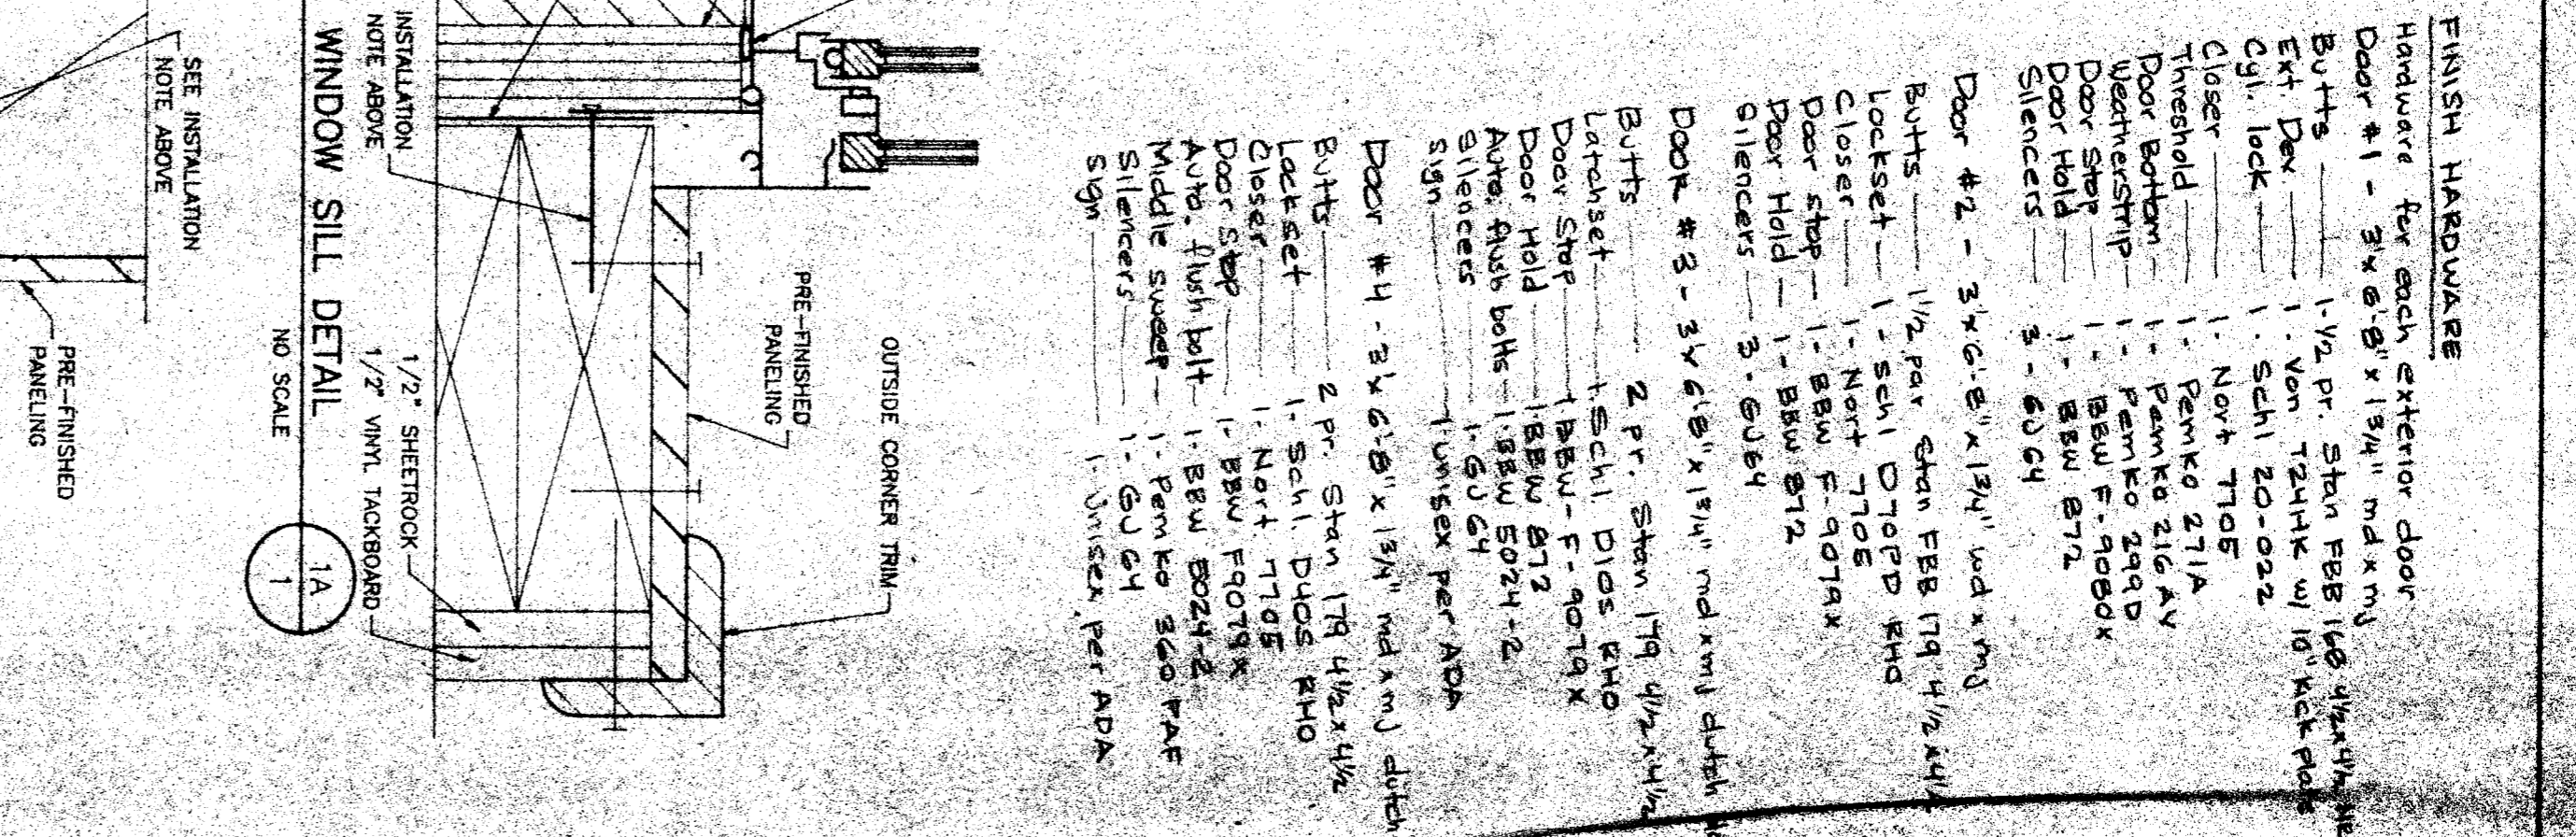 FINISH HARDWARE
Hardware for each exterior door
Door #1 - 3'x6'-8" x 1 3/4" md x mJ
Butts 1-1/2 pr. Stan FBB 168 4 1/2 x 4 1/2
Ext. Dev 1 - Von T24HK w/ 10" kick plate
Cyl. lock 1 - Schl 20-022
Closer 1 - Nort 7705
Threshold 1 - Pemko 271A
Door Bottom 1 - Pemko 216 AV
Weatherstrip 1 - Pemko 299D
Door Stop 1 - BBW F-9080x
Door Hold 1 - BBW 872
Silencers 3 - GJ 64
Door #2 - 3'x6'-8" x 1 3/4" wd x mJ
Butts 1 1/2 par Stan FBB 179 4 1/2 x 4 1/2
Lockset 1 - Schl D70PD RHO
Closer 1 - Nort 7705
Door stop 1 - BBW F-9079x
Door Hold 1 - BBW 872
Silencers 3 - GJ 64
Door #3 - 3'x6'-8" x 1 3/4" md x mJ dutch
Butts 2 pr. Stan 179 4 1/2 x 4 1/2
Latchset 1 Schl D10S RHO
Door Stop 1 BBW - F-9079x
Door Hold 1 BBW 872
Auto. flush bolts 1 - BBW 5024-2
Silencers 1 - GJ 64
Sign 1 unisex per ADA
Door #4 - 3'x6'-8" x 1 3/4" md x mJ dutch
Butts 2 pr. Stan 179 4 1/2 x 4 1/2
Lockset 1 - Schl. D40S RHO
Closer 1 - Nort. 7705
Door Stop 1 - BBW F9079X
Auto. flush bolt 1 - BBW 5024-2
Middle sweep 1 - Pemko 360 PAF
Silencers 1 - GJ 64
Sign 1 - Unisex, per ADA
OUTSIDE CORNER TRIM
PRE-FINISHED
PANELING
INSTALLATION
NOTE ABOVE
1/2" SHEETROCK
1/2" VINYL TACKBOARD
WINDOW SILL DETAIL
NO SCALE
1A
1
SEE INSTALLATION
NOTE ABOVE
PRE-FINISHED
PANELING